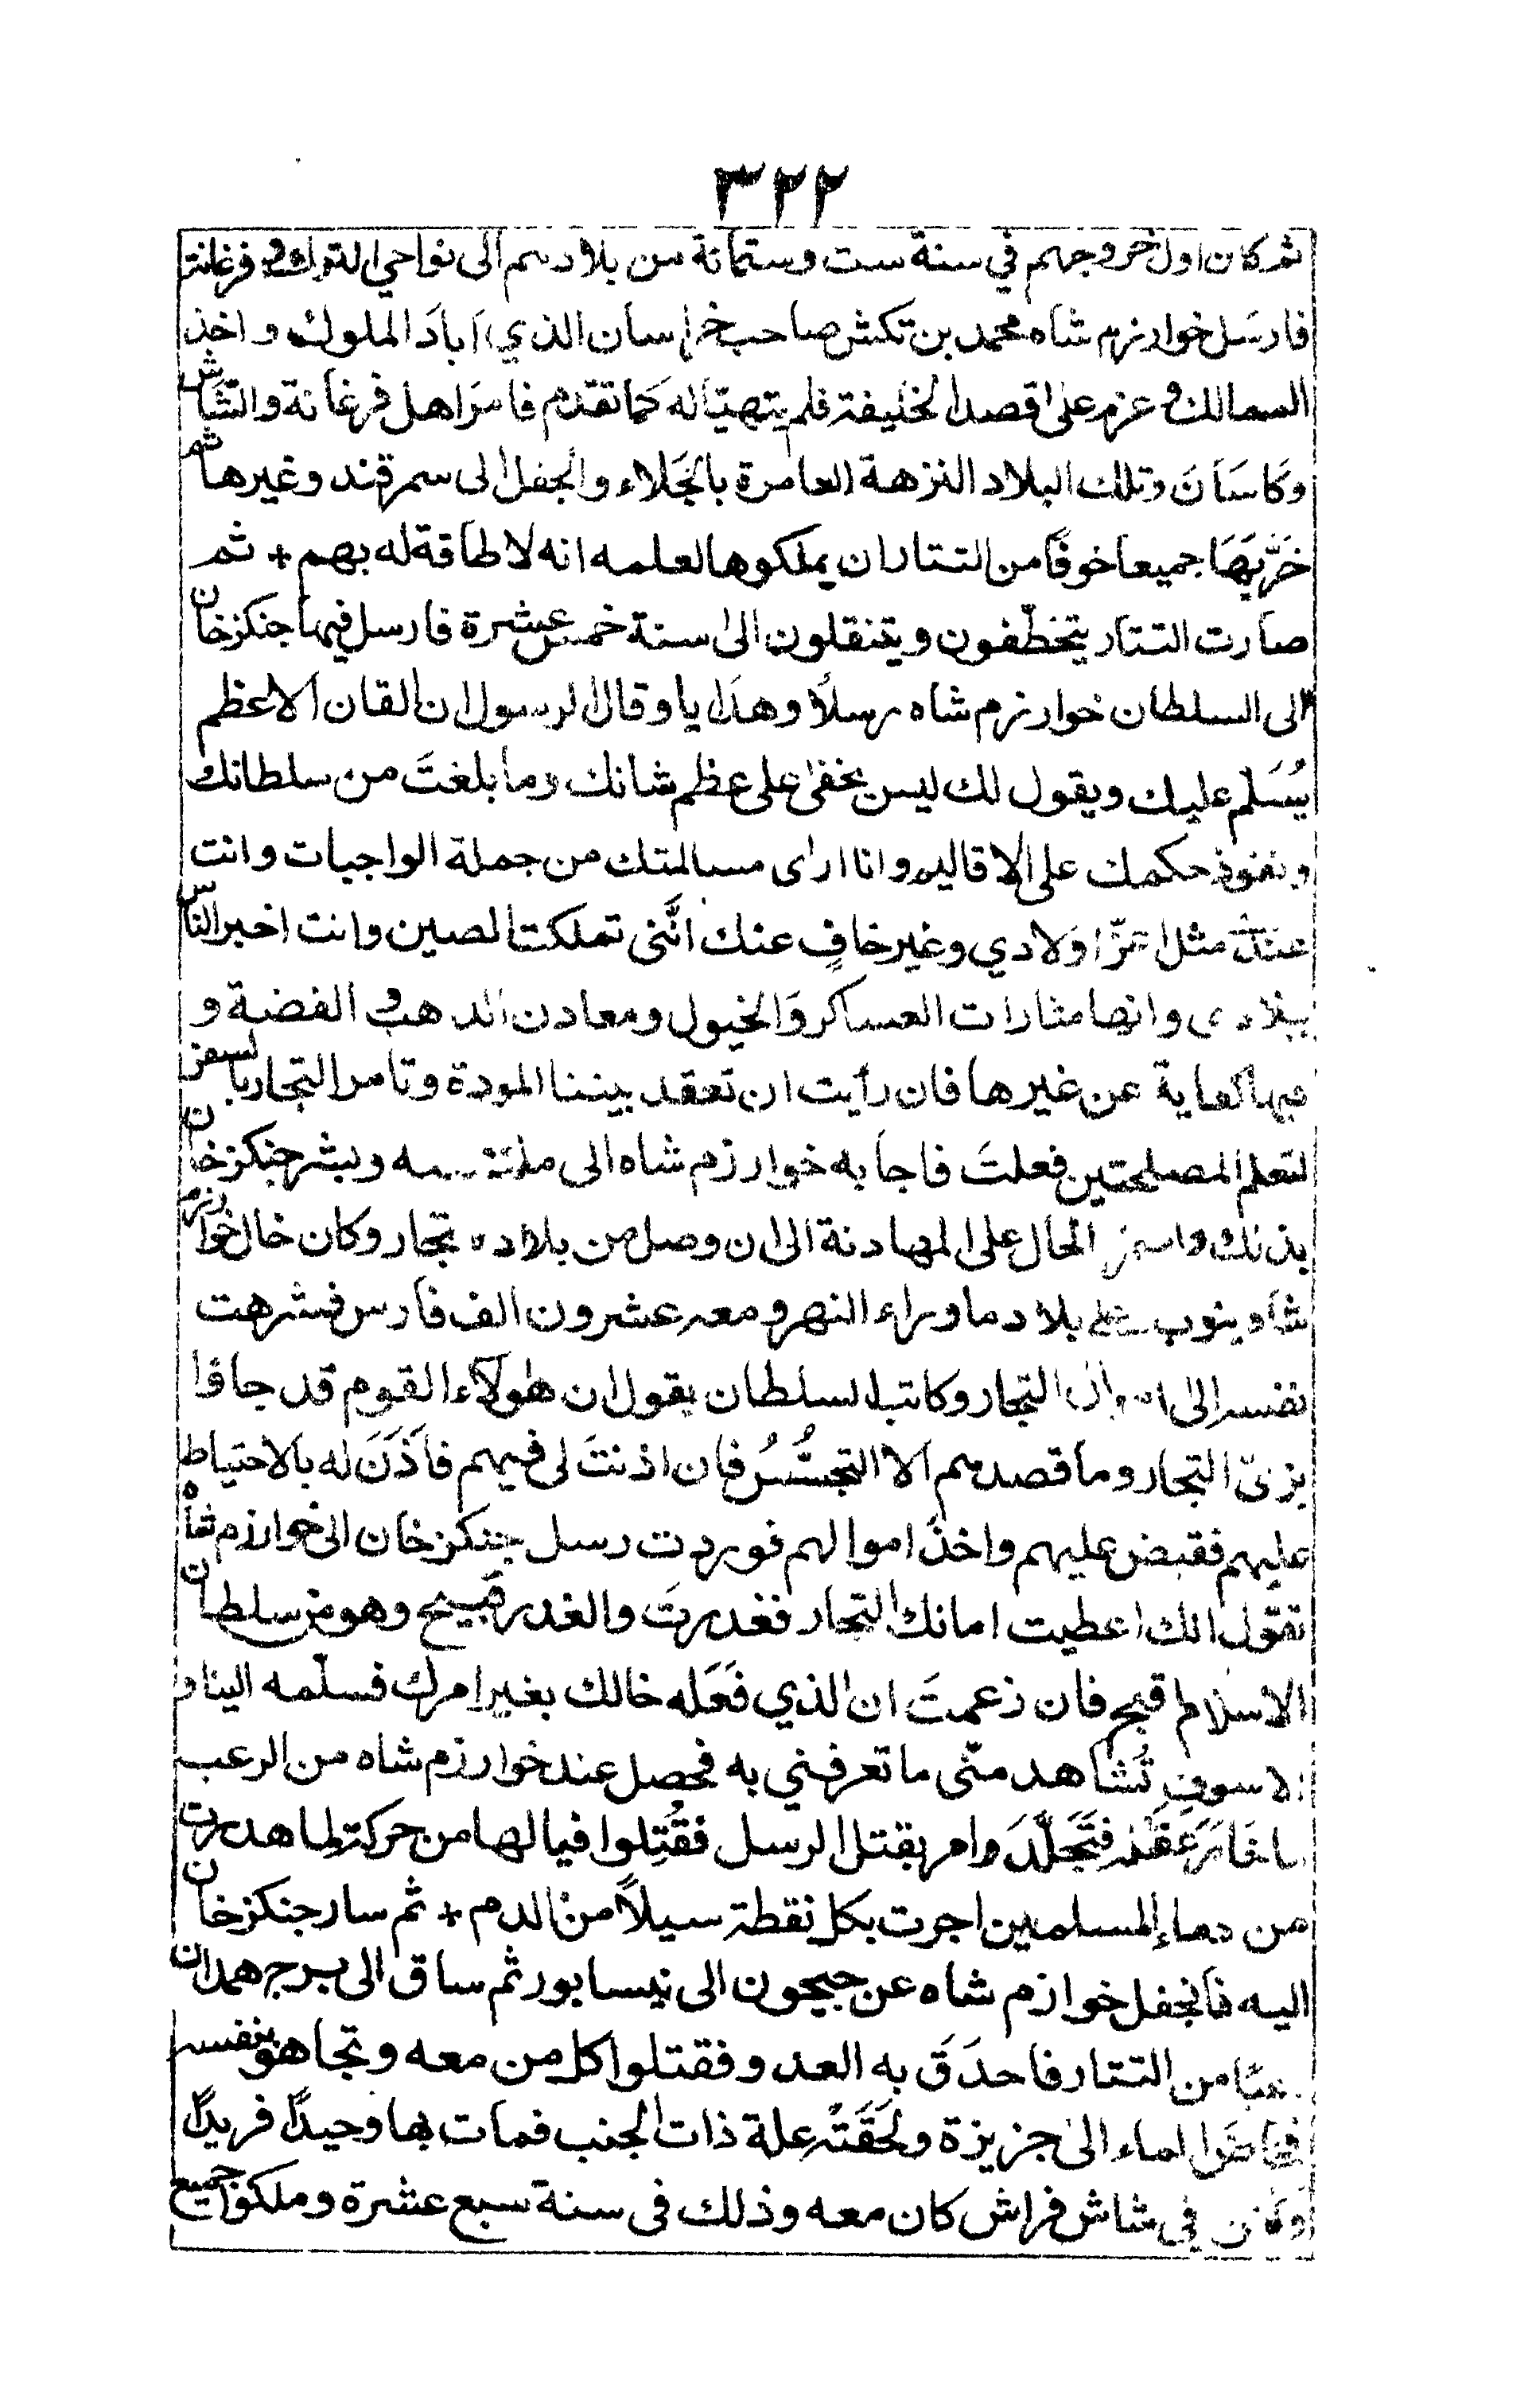 ٣٢٢
ثم كان اول خروجهم في سنة ست وستمائة من بلادهم الى نواحي الترك و فرغانة
فارسَل خوارزم شاه محمد بن تكش صاحب خراسان الذي اَبادَ الملوك و اخذ
الممالك و عزم على قصد الخليفة فلم يتهيّا له كما تقدم فامرَ اهل فرغانة والشاش
وكَاسَانَ وتلك البلاد النزهة العامرة بالجَلاء والجفل الى سمرقند وغيرها ثم
خَرَّبَهَا جميعا خوفًا من التتار ان يملكوها لعلمه انه لا طاقة له بهم + ثم
صارت التتار يتخطّفون ويتنقلون الى سنة خمس عشرة فارسل فيها جنكزخان
الى السلطان خوارزم شاه رسلًا وهدايا وقال الرسول ان القان الاعظم
يُسَلم عليك ويقول لك ليس يخفى على عظم شانك وما بلغتَ من سلطانك
ونفوذ حكمك على الاقاليم وانا ارى مسالمتك من جملة الواجبات وانت
عندى مثل اعزّ اولادي وغير خافٍ عنك انَّنى تملكت الصين وانت اخبر الناس
ببلادى وانها مثارات العساكر وَالخيول ومعادن الذهب و الفضة و
فيها كفاية عن غيرها فان رأيت ان تعقد بيننا المودة وتامر التجار بالسفر
لتعلم المصلحتين فعلتَ فاجابه خوارزم شاه الى ملتمسه وبشر جنكزخان
بذلك واستمر الحال على المهادنة الى ان وصل من بلاده تجار وكان خال خوارزم
شاه ينوب على بلاد ما وراء النهر ومعه عشرون الف فارس فشرهت
نفسه الى اموال التجار وكاتب السلطان يقول ان هٰولآء القوم قد جاؤا
بزىّ التجار وما قصدهم الا التجسُّسُ فان اذنتَ لى فيهم فاَذَنَ له بالاحتياط
عليهم فقبض عليهم واخذ اموالهم فوردت رسل جنكزخان الى خوارزم شاه
تقول انك اعطيت امانك التجار فغدرتَ والغدر قبيح وهو من سلطان
الاسلام اقبح فان زعمتَ ان الذي فَعَله خالك بغير امرك فسلّمه الينا و
الا سوف تُشاهد منّى ما تعرفني به فحصل عند خوارزم شاه من الرعب
ما خامَرَ عَقله فتَجلَّدَ وامر بقتل الرسل فقُتِلوا فيا لها من حركة لما هدرت
من دماء المسلمين اجرت بكل نقطة سيلًا من الدم + ثم سار جنكزخان
اليه فانجفل خوارزم شاه عن جيحون الى نيسابور ثم ساق الى برج همدان
رعبًا من التتار فاحدَقَ به العدو فقتلوا كل من معه ونجا هو بنفسه
فخاض الماء الى جزيرة ولحَقَتْه علة ذات الجنب فمات بها وحيدًا فريدًا
وكفن في شاش فراش كان معه وذلك فى سنة سبع عشرة وملكوا جميع